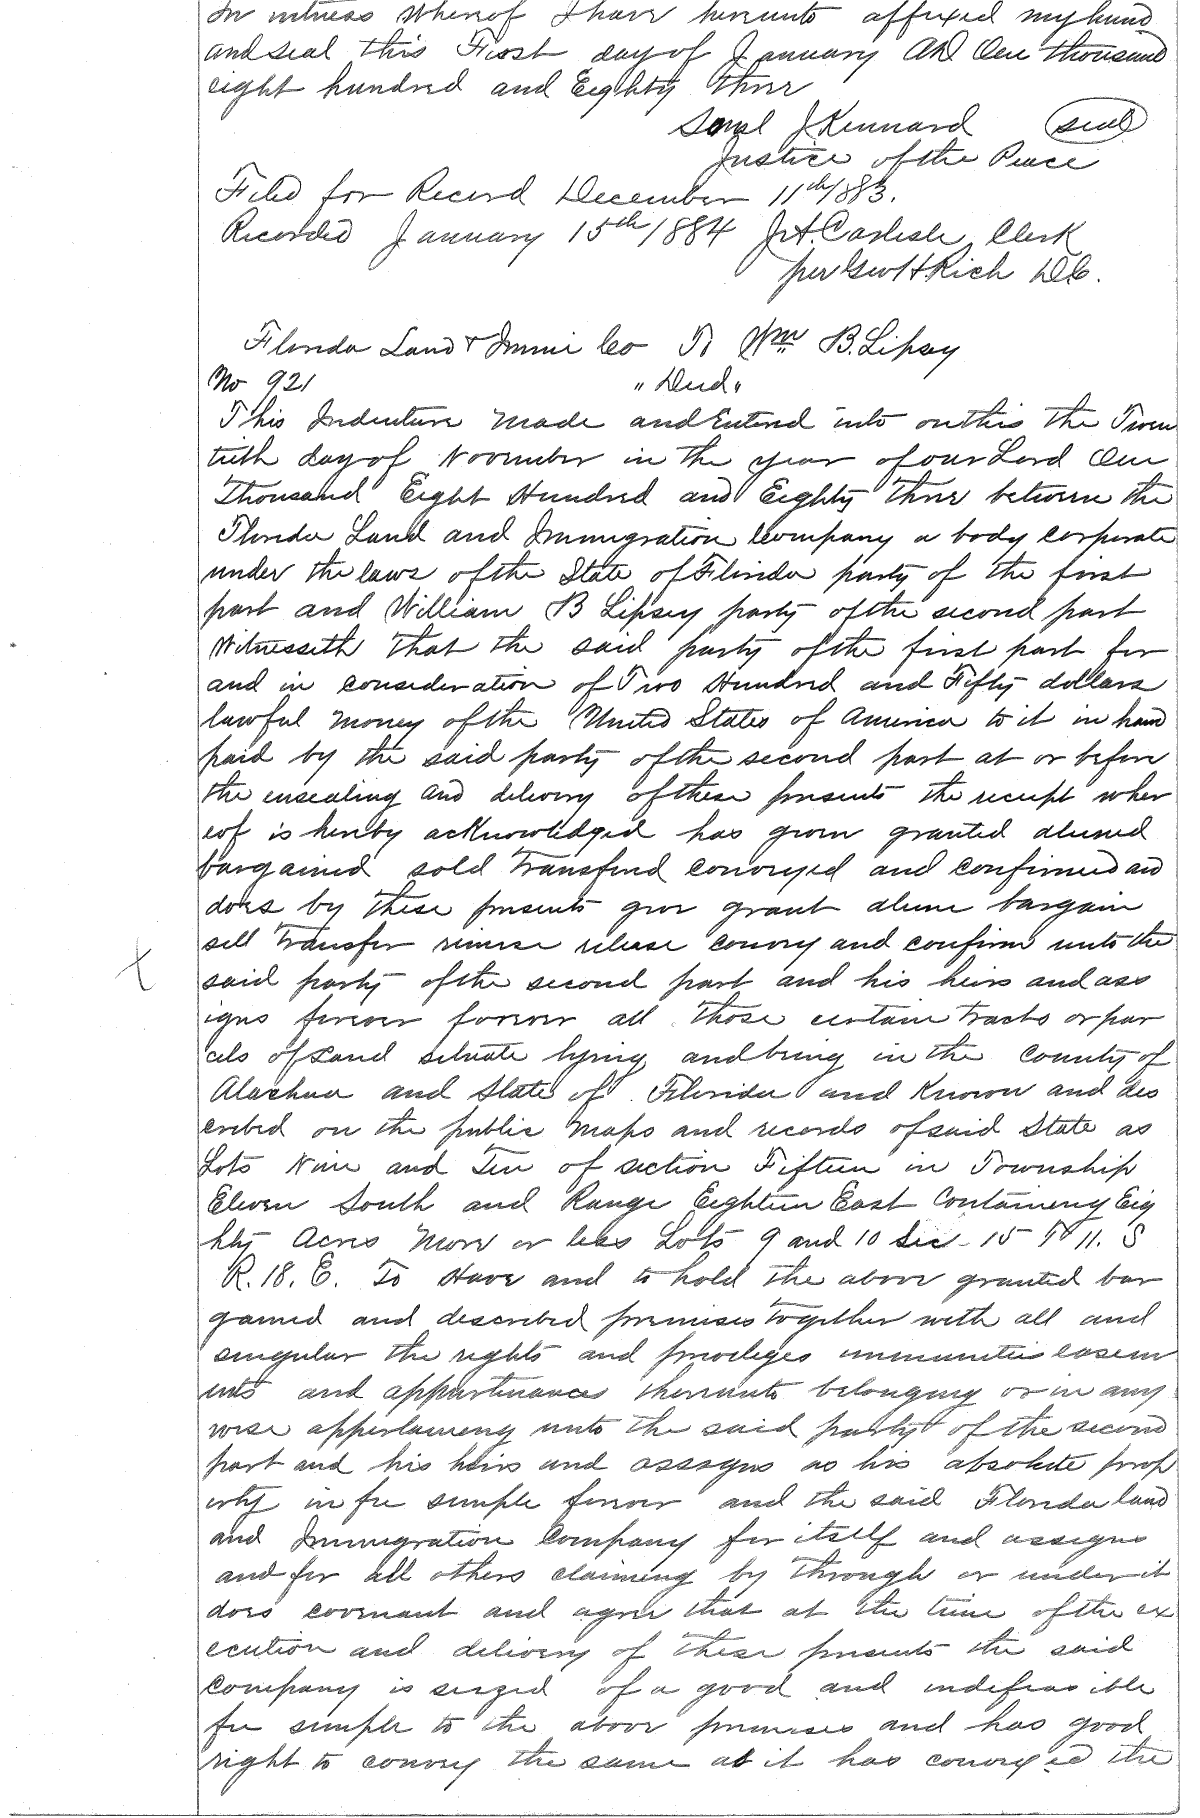 In witness whereof I have hereunto affixed my hand
and seal this First day of January AD One thousand
eight hundred and Eighty three
Saml J Kennard seal
Justice of the Peace
Filed for Record December 11th 1883.
Recorded January 15th 1884 J.A. Carlisle, Clerk
per Geo H. Rich D.C.
Florida Land & Immi Co To Wm B. Lipsey
No 921 "Deed"
This Indenture Made and Entered into on this the Twen
tieth day of November in the year of our Lord One
Thousand Eight Hundred and Eighty Three between the
Florida Land and Immigration Company a body corporate
under the laws of the State of Florida party of the first
part and William B Lipsey party of the second part
Witnesseth that the said party of the first part for
and in consideration of Two Hundred and Fifty dollars
lawful money of the United States of America to it in hand
paid by the said party of the second part at or before
the ensealing and delivery of these presents the receipt wher
eof is hereby acknowledged has given granted aliened
bargained sold transfered conveyed and confirmed and
does by these presents give grant aliene bargain
sell transfer remise release convey and confirm unto the
said party of the second part and his heirs and ass
igns forever forever all those certain tracts or par
cels of Land situate lying and being in the County of
Alachua and State of Florida and Known and des
cribed on the public Maps and records of said State as
Lots Nine and Ten of section Fifteen in Township
Eleven South and Range Eighteen East Containing Eig
hty Acres More or less Lots 9 and 10 Sec 15 T 11. S
R. 18. E. To Have and to hold the above granted bar
gained and described premises together with all and
singular the rights and privileges immunities easem
ents and appurtinances thereunto belonging or in any
wise appertaining unto the said party of the second
part and his heirs and assigns as his absolute prop
erty in fee simple forever and the said Florida land
and Immigration Company for itself and assigns
and for all others claiming by through or under it
does covenant and agree that at the time of the ex
ecution and delivery of these presents the said
Company is seized of a good and indefeasible
fee simple to the above premises and has good
right to convey the same as it has conveyed the